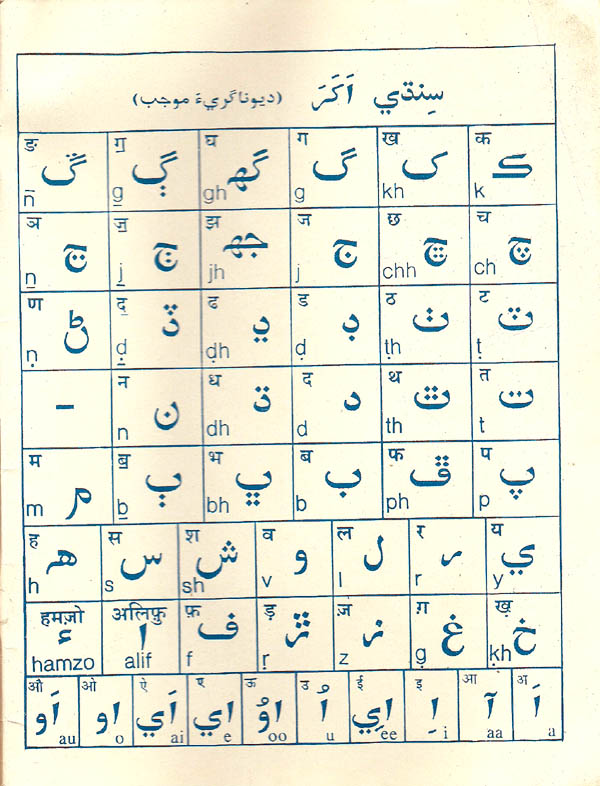 سِنڌي اَکَرَ (ديوناگريءَ موجب)
क ڪ k ख ک kh ग گ g घ گهہ gh ॻ ڳ g̱ ङ ڱ n̄
च چ ch छ ڇ chh ज ج j झ جهہ jh ॼ ڄ j̱ ञ ڃ ṉ
ट ٽ ṭ ठ ٺ ṭh ड ڊ ḍ ढ ڍ ḍh ॾ ڏ ḏ ण ڻ ṇ
त ت t थ ٿ th द د d ध ڌ dh न ن n –
प پ p फ ڦ ph ब ب b भ ڀ bh ॿ ٻ ḇ म م m
य ي y र ر r ल ل l व و v श ش sh स س s ह ھ h
ख़ خ ḳh ग़ غ g̣ ज़ ز z ड़ ڙ ṛ फ़ ف f अलिफु ا alif हमज़ो ء hamzo
अ اَ a आ آ aa इ اِ i ई اِي ee उ اُ u ऊ اوُ oo ए اي e ऐ اَي ai ओ او o औ اَو au